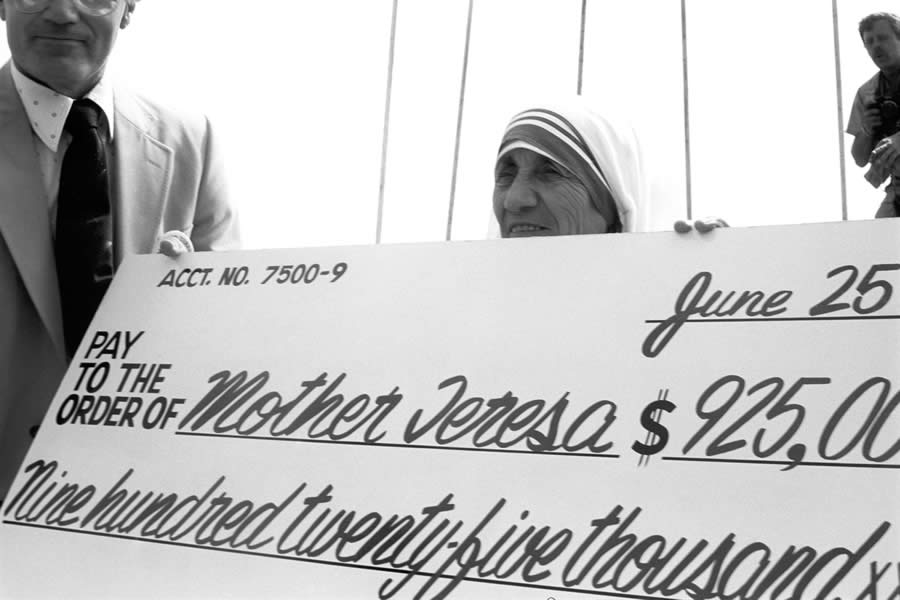 ACCT. NO. 7500-9
June 25
PAY
TO THE
ORDER OF Mother Teresa $ 925,00
Nine hundred twenty-five thousand xx